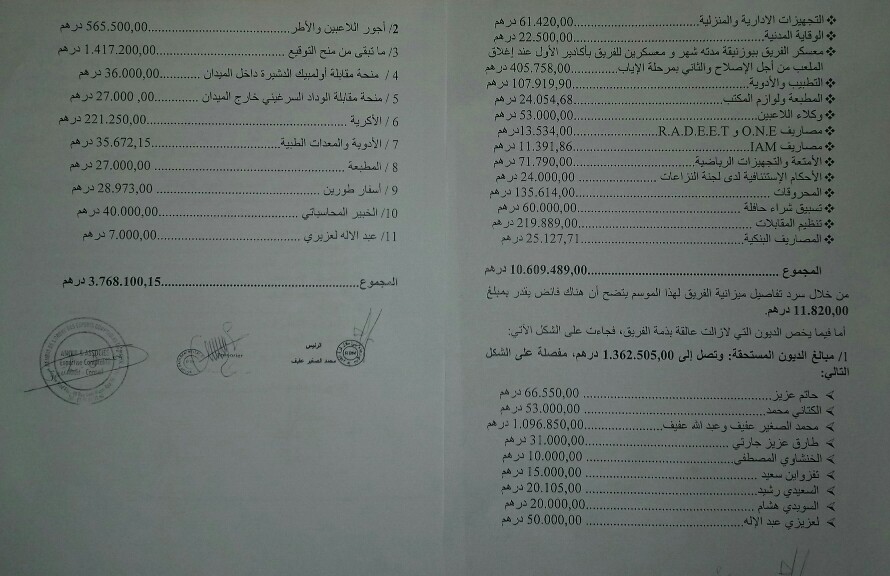 ❖ التجهيزات الادارية والمنزلية..............................61.420,00 درهم
❖ الوقاية المدنية..............................22.500,00 درهم
❖ معسكر الفريق ببوزنيقة مدته شهر و معسكرين للفريق بأكادير الأول عند إغلاق
الملعب من أجل الإصلاح والثاني بمرحلة الإياب..............405.758,00 درهم
❖ التطبيب والأدوية..............................107.919,90 درهم
❖ المطبعة ولوازم المكتب..............................24.054,68 درهم
❖ وكلاء اللاعبين..............................53.000,00 درهم
❖ مصاريف O.N.E و R.A.D.E.E.T..............................13.534,00درهم
❖ مصاريف IAM..............................11.391,86 درهم
❖ الأمتعة والتجهيزات الرياضية..............................71.790,00 درهم
❖ الأحكام الإستئنافية لدى لجنة النزاعات ....................24.000,00 درهم
❖ المحروقات..............................135.614,00 درهم
❖ تسبيق شراء حافلة ..............................60.000,00 درهم
❖ تنظيم المقابلات..............................219.889,00 درهم
❖ المصاريف البنكية..............................25.127,71 درهم
المجموع ..............................10.609.489,00 درهم
من خلال سرد تفاصيل ميزانية الفريق لهذا الموسم يتضح أن هناك فائض يقدر بمبلغ
11.820,00 درهم.
أما فيما يخص الديون التي لازالت عالقة بذمة الفريق، فجاءت على الشكل الآتي:
1/ مبالغ الديون المستحقة: وتصل إلى 1.362.505,00 درهم، مفصلة على الشكل
التالي:
➢ حاتم عزيز..............................66.550,00 درهم
➢ الكتاني محمد..............................53.000,00 درهم
➢ محمد الصغير عفيف وعبد الله عفيف....................1.096.850,00 درهم
➢ طارق عزيز جارتي ..............................31.000,00 درهم
➢ الخنشاوي المصطفى..............................10.000,00 درهم
➢ تفزواين سعيد ..............................15.000,00 درهم
➢ السعيدي رشيد..............................20.105,00 درهم
➢ السويدي هشام ..............................20.000,00 درهم
➢ لعزيزي عبد الإله..............................50.000,00 درهم
2/ أجور اللاعبين والأطر..............................565.500,00 درهم
3/ ما تبقى من منح التوقيع ..............................1.417.200,00 درهم
4 / منحة مقابلة أولمبيك الدشيرة داخل الميدان ....................36.000,00 درهم
5 / منحة مقابلة الوداد السرغيني خارج الميدان ....................27.000 ,00 درهم
6 / الأكرية ..............................221.250,00 درهم
7 / الأدوية والمعدات الطبية..............................35.672,15 درهم
8 / المطبعة ..............................27.000,00 درهم
9 / أسفار طورين ..............................28.973,00 درهم
10/ الخبير المحاسباتي ..............................40.000,00 درهم
11/ عبد الاله لعزيري ..............................7.000,00 درهم
المجموع..............................3.768.100,15 درهم
الرئيس
محمد الصغير عفيف